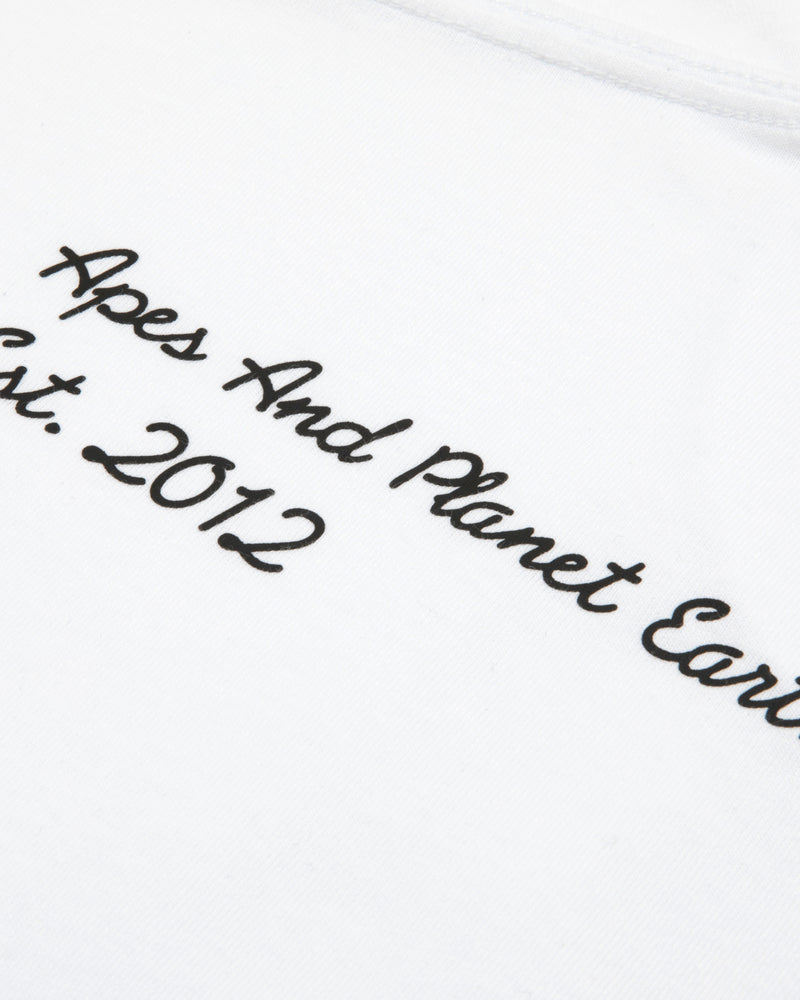 Apes And Planet Earth
Est. 2012